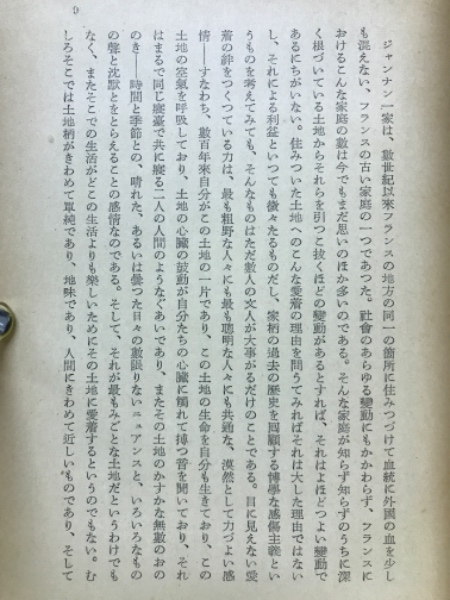 9
ジャンナン一家は、數世紀以來フランスの地方の同一の箇所に住みつづけて血統に外國の血を少し
も混えない、フランスの古い家庭の一つであつた。社會のあらゆる變動にもかかわらず、フランスに
おけるこんな家庭の數は今でもまだ思いのほか多いのである。そんな家庭が知らず知らずのうちに深
く根づいている土地からそれらを引つこ拔くほどの變動があるとすれば、それはよほどつよい變動で
あるにちがいない。住みついた土地へのこんな愛着の理由を問うてみればそれは大した理由ではない
し、それによる利益といつても微々たるものだし、家柄の過去の歷史を囘顧する博學な感傷主義とい
うものを考えてみても、そんなものはただ數人の文人が大事がるだけのことである。目に見えない愛
着の絆をつくつている力は、最も粗野な人々にも最も聰明な人々にも共通な、漠然として力づよい感
情──すなわち、數百年來自分がこの土地の一片であり、この土地の生命を自分も生きており、この
土地の空氣を呼吸しており、土地の心臟の鼓動が自分たちの心臟に觸れて搏つ音を聞いており、それ
はまるで同じ寢臺で共に寢る二人の人間のようなぐあいであり、またその土地のかすかな無數のおの
のき──時間と季節との、晴れた、あるいは曇つた日々の數限りないニュアンスと、いろいろなもの
の聲と沈默とをとらえることの感情なのである。そして、それが最もみごとな土地だというわけでも
なく、またそこでの生活がどこの生活よりも樂しいためにその土地に愛着するというのでもない。む
しろそこでは土地柄がきわめて單純であり、地味であり、人間にきわめて近しいものであり、そして